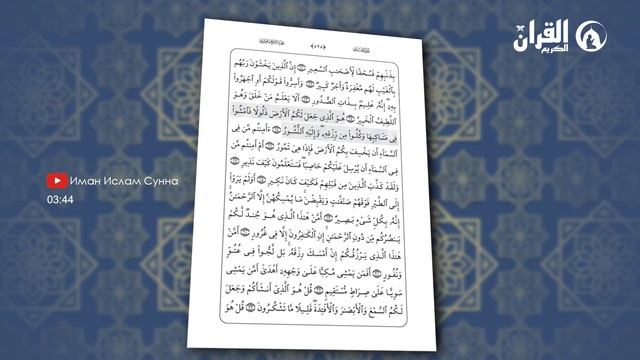 القرآن
الكريم
بِذَنۢبِهِمْ فَسُحْقًا لِّأَصْحَٰبِ ٱلسَّعِيرِ ۝ إِنَّ ٱلَّذِينَ يَخْشَوْنَ رَبَّهُم
بِٱلْغَيْبِ لَهُم مَّغْفِرَةٌ وَأَجْرٌ كَبِيرٌ ۝ وَأَسِرُّوا۟ قَوْلَكُمْ أَوِ ٱجْهَرُوا۟
بِهِۦٓ إِنَّهُۥ عَلِيمٌۢ بِذَاتِ ٱلصُّدُورِ ۝ أَلَا يَعْلَمُ مَنْ خَلَقَ وَهُوَ
ٱللَّطِيفُ ٱلْخَبِيرُ ۝ هُوَ ٱلَّذِى جَعَلَ لَكُمُ ٱلْأَرْضَ ذَلُولًا فَٱمْشُوا۟
فِى مَنَاكِبِهَا وَكُلُوا۟ مِن رِّزْقِهِۦ وَإِلَيْهِ ٱلنُّشُورُ ۝ ءَأَمِنتُم مَّن فِى
ٱلسَّمَآءِ أَن يَخْسِفَ بِكُمُ ٱلْأَرْضَ فَإِذَا هِىَ تَمُورُ ۝ أَمْ أَمِنتُم مَّن
فِى ٱلسَّمَآءِ أَن يُرْسِلَ عَلَيْكُمْ حَاصِبًا فَسَتَعْلَمُونَ كَيْفَ نَذِيرِ ۝
وَلَقَدْ كَذَّبَ ٱلَّذِينَ مِن قَبْلِهِمْ فَكَيْفَ كَانَ نَكِيرِ ۝ أَوَلَمْ يَرَوْا۟
إِلَى ٱلطَّيْرِ فَوْقَهُمْ صَٰٓفَّٰتٍ وَيَقْبِضْنَ مَا يُمْسِكُهُنَّ إِلَّا ٱلرَّحْمَٰنُ
إِنَّهُۥ بِكُلِّ شَىْءٍۭ بَصِيرٌ ۝ أَمَّنْ هَٰذَا ٱلَّذِى هُوَ جُندٌ لَّكُمْ
يَنصُرُكُم مِّن دُونِ ٱلرَّحْمَٰنِ إِنِ ٱلْكَٰفِرُونَ إِلَّا فِى غُرُورٍ ۝ أَمَّنْ
هَٰذَا ٱلَّذِى يَرْزُقُكُمْ إِنْ أَمْسَكَ رِزْقَهُۥ بَل لَّجُّوا۟ فِى عُتُوٍّ
وَنُفُورٍ ۝ أَفَمَن يَمْشِى مُكِبًّا عَلَىٰ وَجْهِهِۦٓ أَهْدَىٰٓ أَمَّن يَمْشِى
سَوِيًّا عَلَىٰ صِرَٰطٍ مُّسْتَقِيمٍ ۝ قُلْ هُوَ ٱلَّذِىٓ أَنشَأَكُمْ وَجَعَلَ
لَكُمُ ٱلسَّمْعَ وَٱلْأَبْصَٰرَ وَٱلْأَفْـِٔدَةَ قَلِيلًا مَّا تَشْكُرُونَ ۝ قُلْ هُوَ
Иман Ислам Сунна
03:44